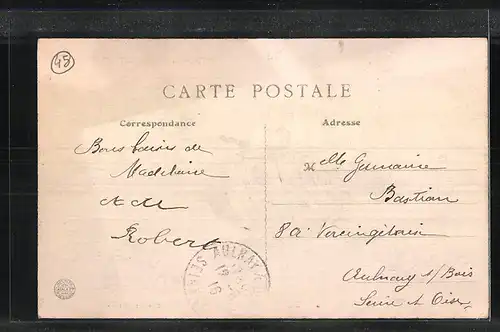 45
CARTE POSTALE
Correspondance
Adresse
Bons baisers de
Madeleine
et de
Robert
Melle Germaine
Bastian
8 a Vercingétorix
Aulnay s/ Bois
Seine et Oise
AULNAY
16